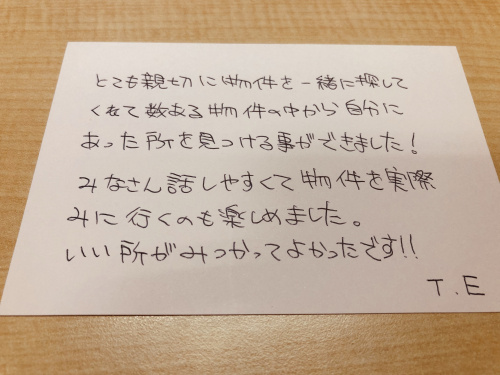 とても親切に物件を一緒に探して
くれて数ある物件の中から自分に
あった所を見つける事ができました!
みなさん話しやすくて物件を実際
みに行くのも楽しめました。
いい所がみつかってよかったです!!
T.E